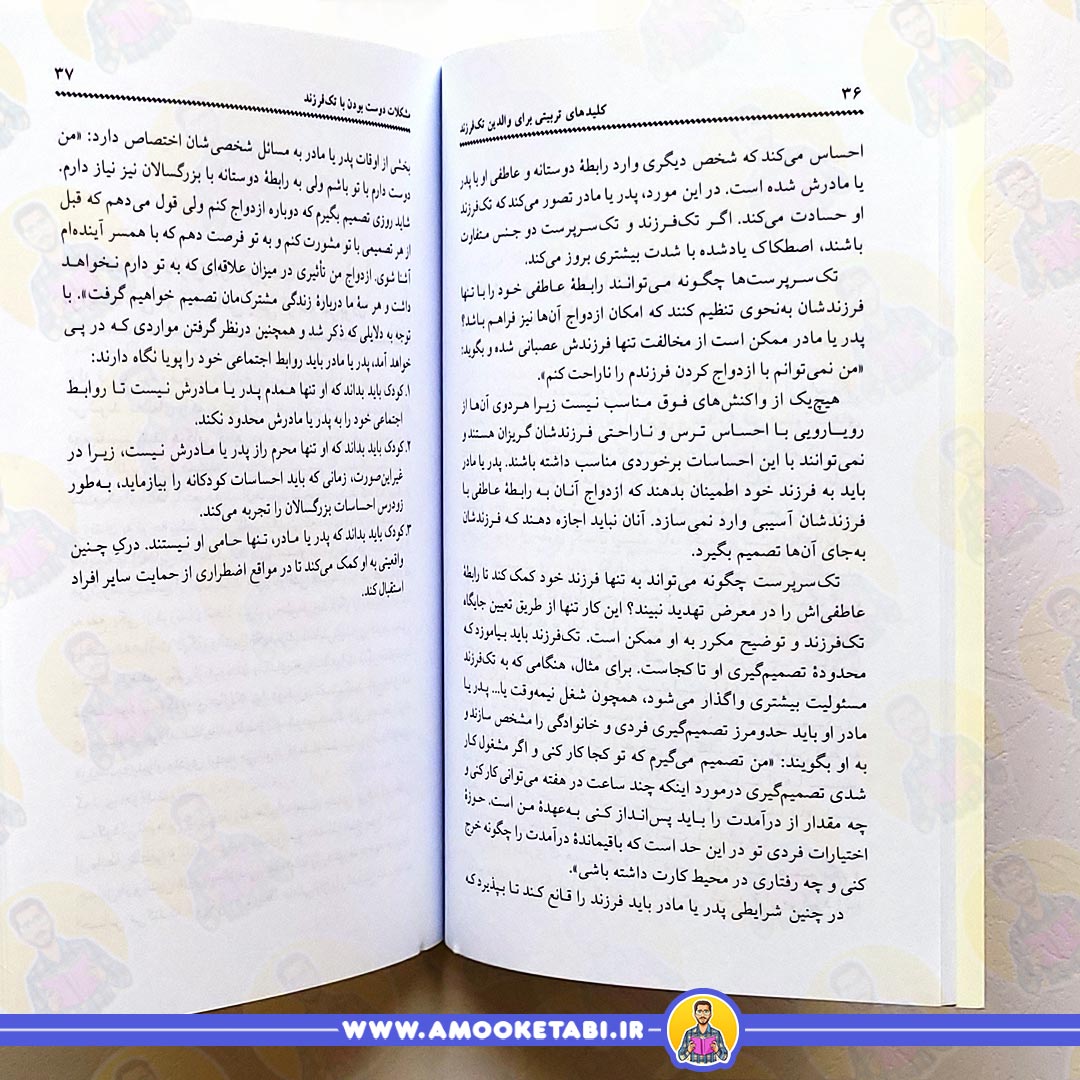 ۳۶
کلیدهای تربیتی برای والدین تک‌فرزند
احساس می‌کند که شخص دیگری وارد رابطهٔ دوستانه و عاطفی او با پدر
یا مادرش شده است. در این مورد، پدر یا مادر تصور می‌کند که تک‌فرزند
او حسادت می‌کند. اگر تک‌فرزند و تک‌سرپرست دو جنس متفاوت
باشند، اصطکاک یادشده با شدت بیشتری بروز می‌کند.
تک‌سرپرست‌ها چگونه می‌توانند رابطهٔ عاطفی خود را با تنها
فرزندشان به‌نحوی تنظیم کنند که امکان ازدواج آن‌ها نیز فراهم باشد؟
پدر یا مادر ممکن است از مخالفت تنها فرزندش عصبانی شده و بگوید:
«من نمی‌توانم با ازدواج کردن فرزندم را ناراحت کنم».
هیچ‌یک از واکنش‌های فوق مناسب نیست زیرا هردوی آن‌ها از
رویارویی با احساس ترس و ناراحتی فرزندشان گریزان هستند و
نمی‌توانند با این احساسات برخوردی مناسب داشته باشند. پدر یا مادر
باید به فرزند خود اطمینان بدهند که ازدواج آنان به رابطهٔ عاطفی با
فرزندشان آسیبی وارد نمی‌سازد. آنان نباید اجازه دهند که فرزندشان
به‌جای آن‌ها تصمیم بگیرد.
تک‌سرپرست چگونه می‌تواند به تنها فرزند خود کمک کند تا رابطهٔ
عاطفی‌اش را در معرض تهدید نبیند؟ این کار تنها از طریق تعیین جایگاه
تک‌فرزند و توضیح مکرر به او ممکن است. تک‌فرزند باید بیاموزد که
محدودهٔ تصمیم‌گیری او تا کجاست. برای مثال، هنگامی که به تک‌فرزند
مسئولیت بیشتری واگذار می‌شود، همچون شغل نیمه‌وقت یا... پدر یا
مادر او باید حدومرز تصمیم‌گیری فردی و خانوادگی را مشخص سازند و
به او بگویند: «من تصمیم می‌گیرم که تو کجا کار کنی و اگر مشغول کار
شدی تصمیم‌گیری درمورد اینکه چند ساعت در هفته می‌توانی کار کنی و
چه مقدار از درآمدت را باید پس‌انداز کنی به‌عهدهٔ من است. حوزهٔ
اختیارات فردی تو در این حد است که باقیماندهٔ درآمدت را چگونه خرج
کنی و چه رفتاری در محیط کارت داشته باشی».
در چنین شرایطی پدر یا مادر باید فرزند را قانع کند تا بپذیرد که
۳۷
مشکلات دوست بودن با تک‌فرزند
بخشی از اوقات پدر یا مادر به مسائل شخصی‌شان اختصاص دارد: «من
دوست دارم با تو باشم ولی به رابطهٔ دوستانه با بزرگسالان نیز نیاز دارم.
شاید روزی تصمیم بگیرم که دوباره ازدواج کنم ولی قول می‌دهم که قبل
از هر تصمیمی با تو مشورت کنم و به تو فرصت دهم که با همسر آینده‌ام
آشنا شوی. ازدواج من تأثیری در میزان علاقه‌ای که به تو دارم نخواهد
داشت و هر سهٔ ما دربارهٔ زندگی مشترک‌مان تصمیم خواهیم گرفت». با
توجه به دلایلی که ذکر شد و همچنین درنظر گرفتن مواردی که در پی
خواهد آمد، پدر یا مادر باید روابط اجتماعی خود را پویا نگاه دارند:
۱. کودک باید بداند که او تنها همدم پدر یا مادرش نیست تا روابط
اجتماعی خود را به پدر یا مادرش محدود نکند.
۲. کودک باید بداند که او تنها محرم راز پدر یا مادرش نیست، زیرا در
غیراین‌صورت، زمانی که باید احساسات کودکانه را بیازماید، به‌طور
زودرس احساسات بزرگسالان را تجربه می‌کند.
۳. کودک باید بداند که پدر یا مادر، تنها حامی او نیستند. درکِ چنین
واقعیتی به او کمک می‌کند تا در مواقع اضطراری از حمایت سایر افراد
استقبال کند.
WWW.AMOOKETABI.IR